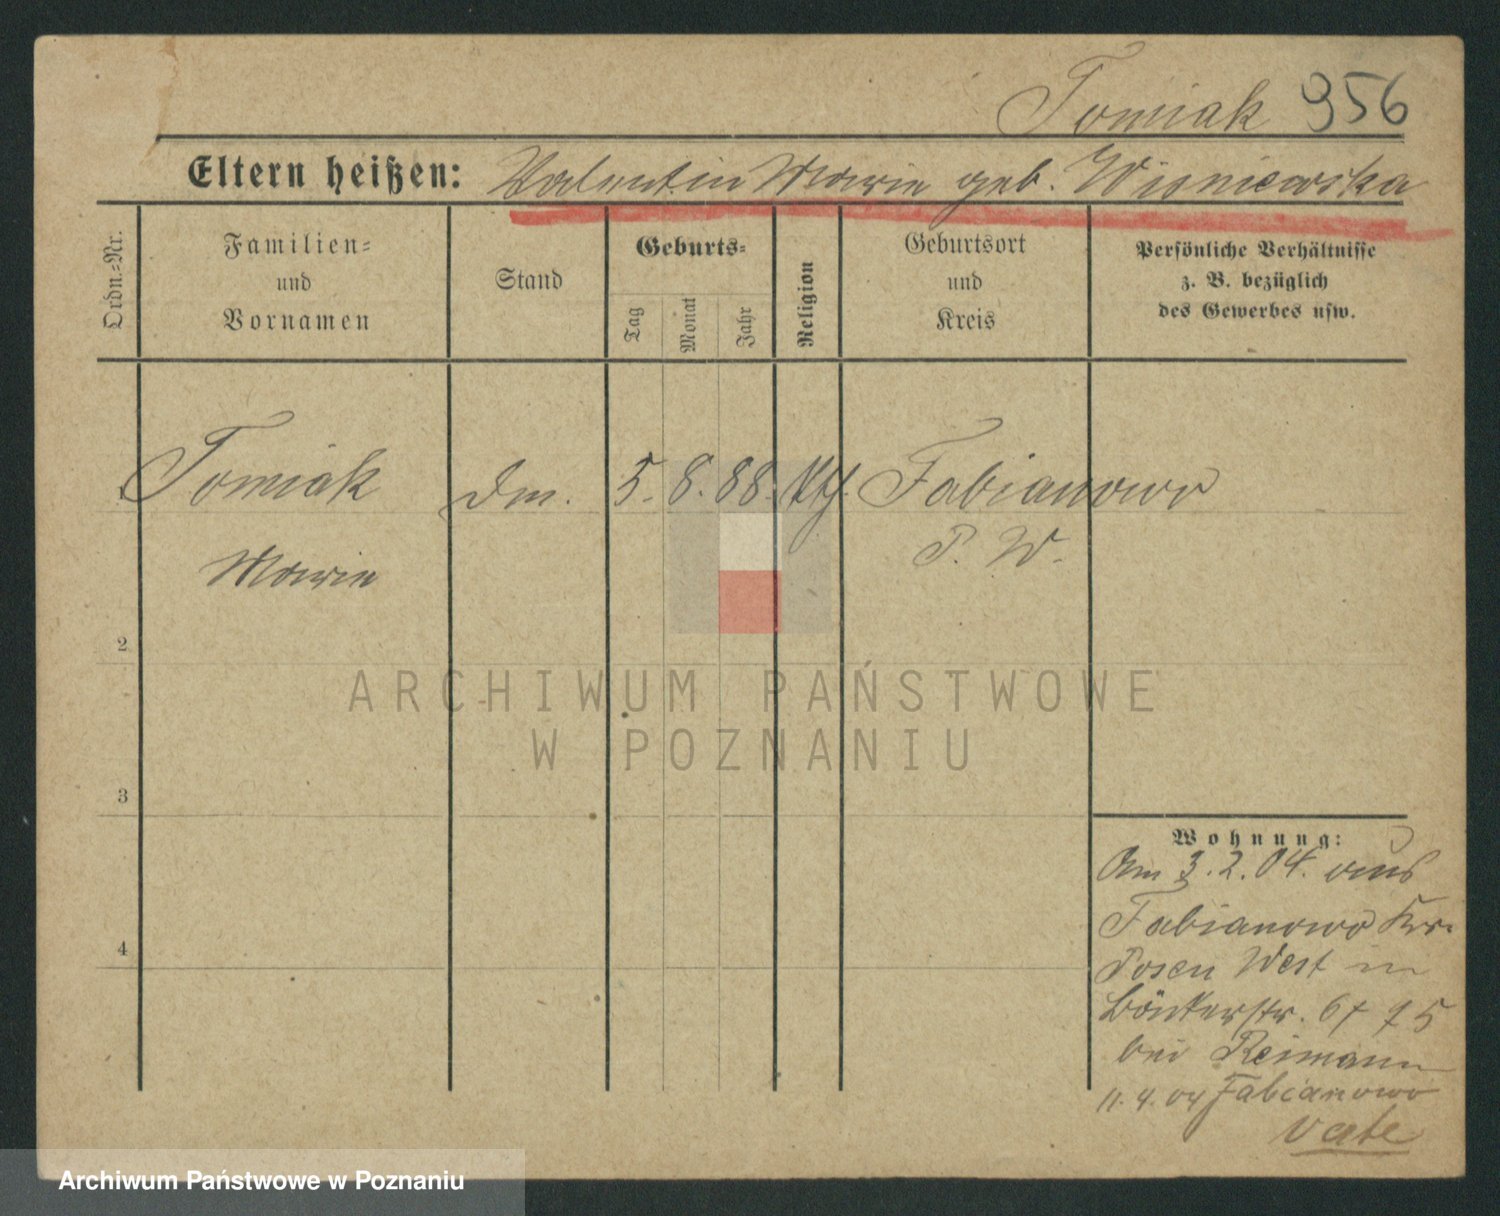 Tomiak 956
Eltern heißen: Valentin Marie geb. Wisniewska
Ordn.=Nr.
Familien=
und
Vornamen
Stand
Geburts=
Tag
Monat
Jahr
Religion
Geburtsort
und
Kreis
Persönliche Verhältnisse
z. B. bezüglich
des Gewerbes usw.
1 Tomiak Dm. 5. 8. 88. Kth. Fabianowo
Marie P. W.
2
3
4
ARCHIWUM PAŃSTWOWE
W POZNANIU
Wohnung:
Am 3.2.04. aus
Fabianowo Kr.
Posen West in
bei Reimann
11.4.04 Fabianowo
Archiwum Państwowe w Poznaniu